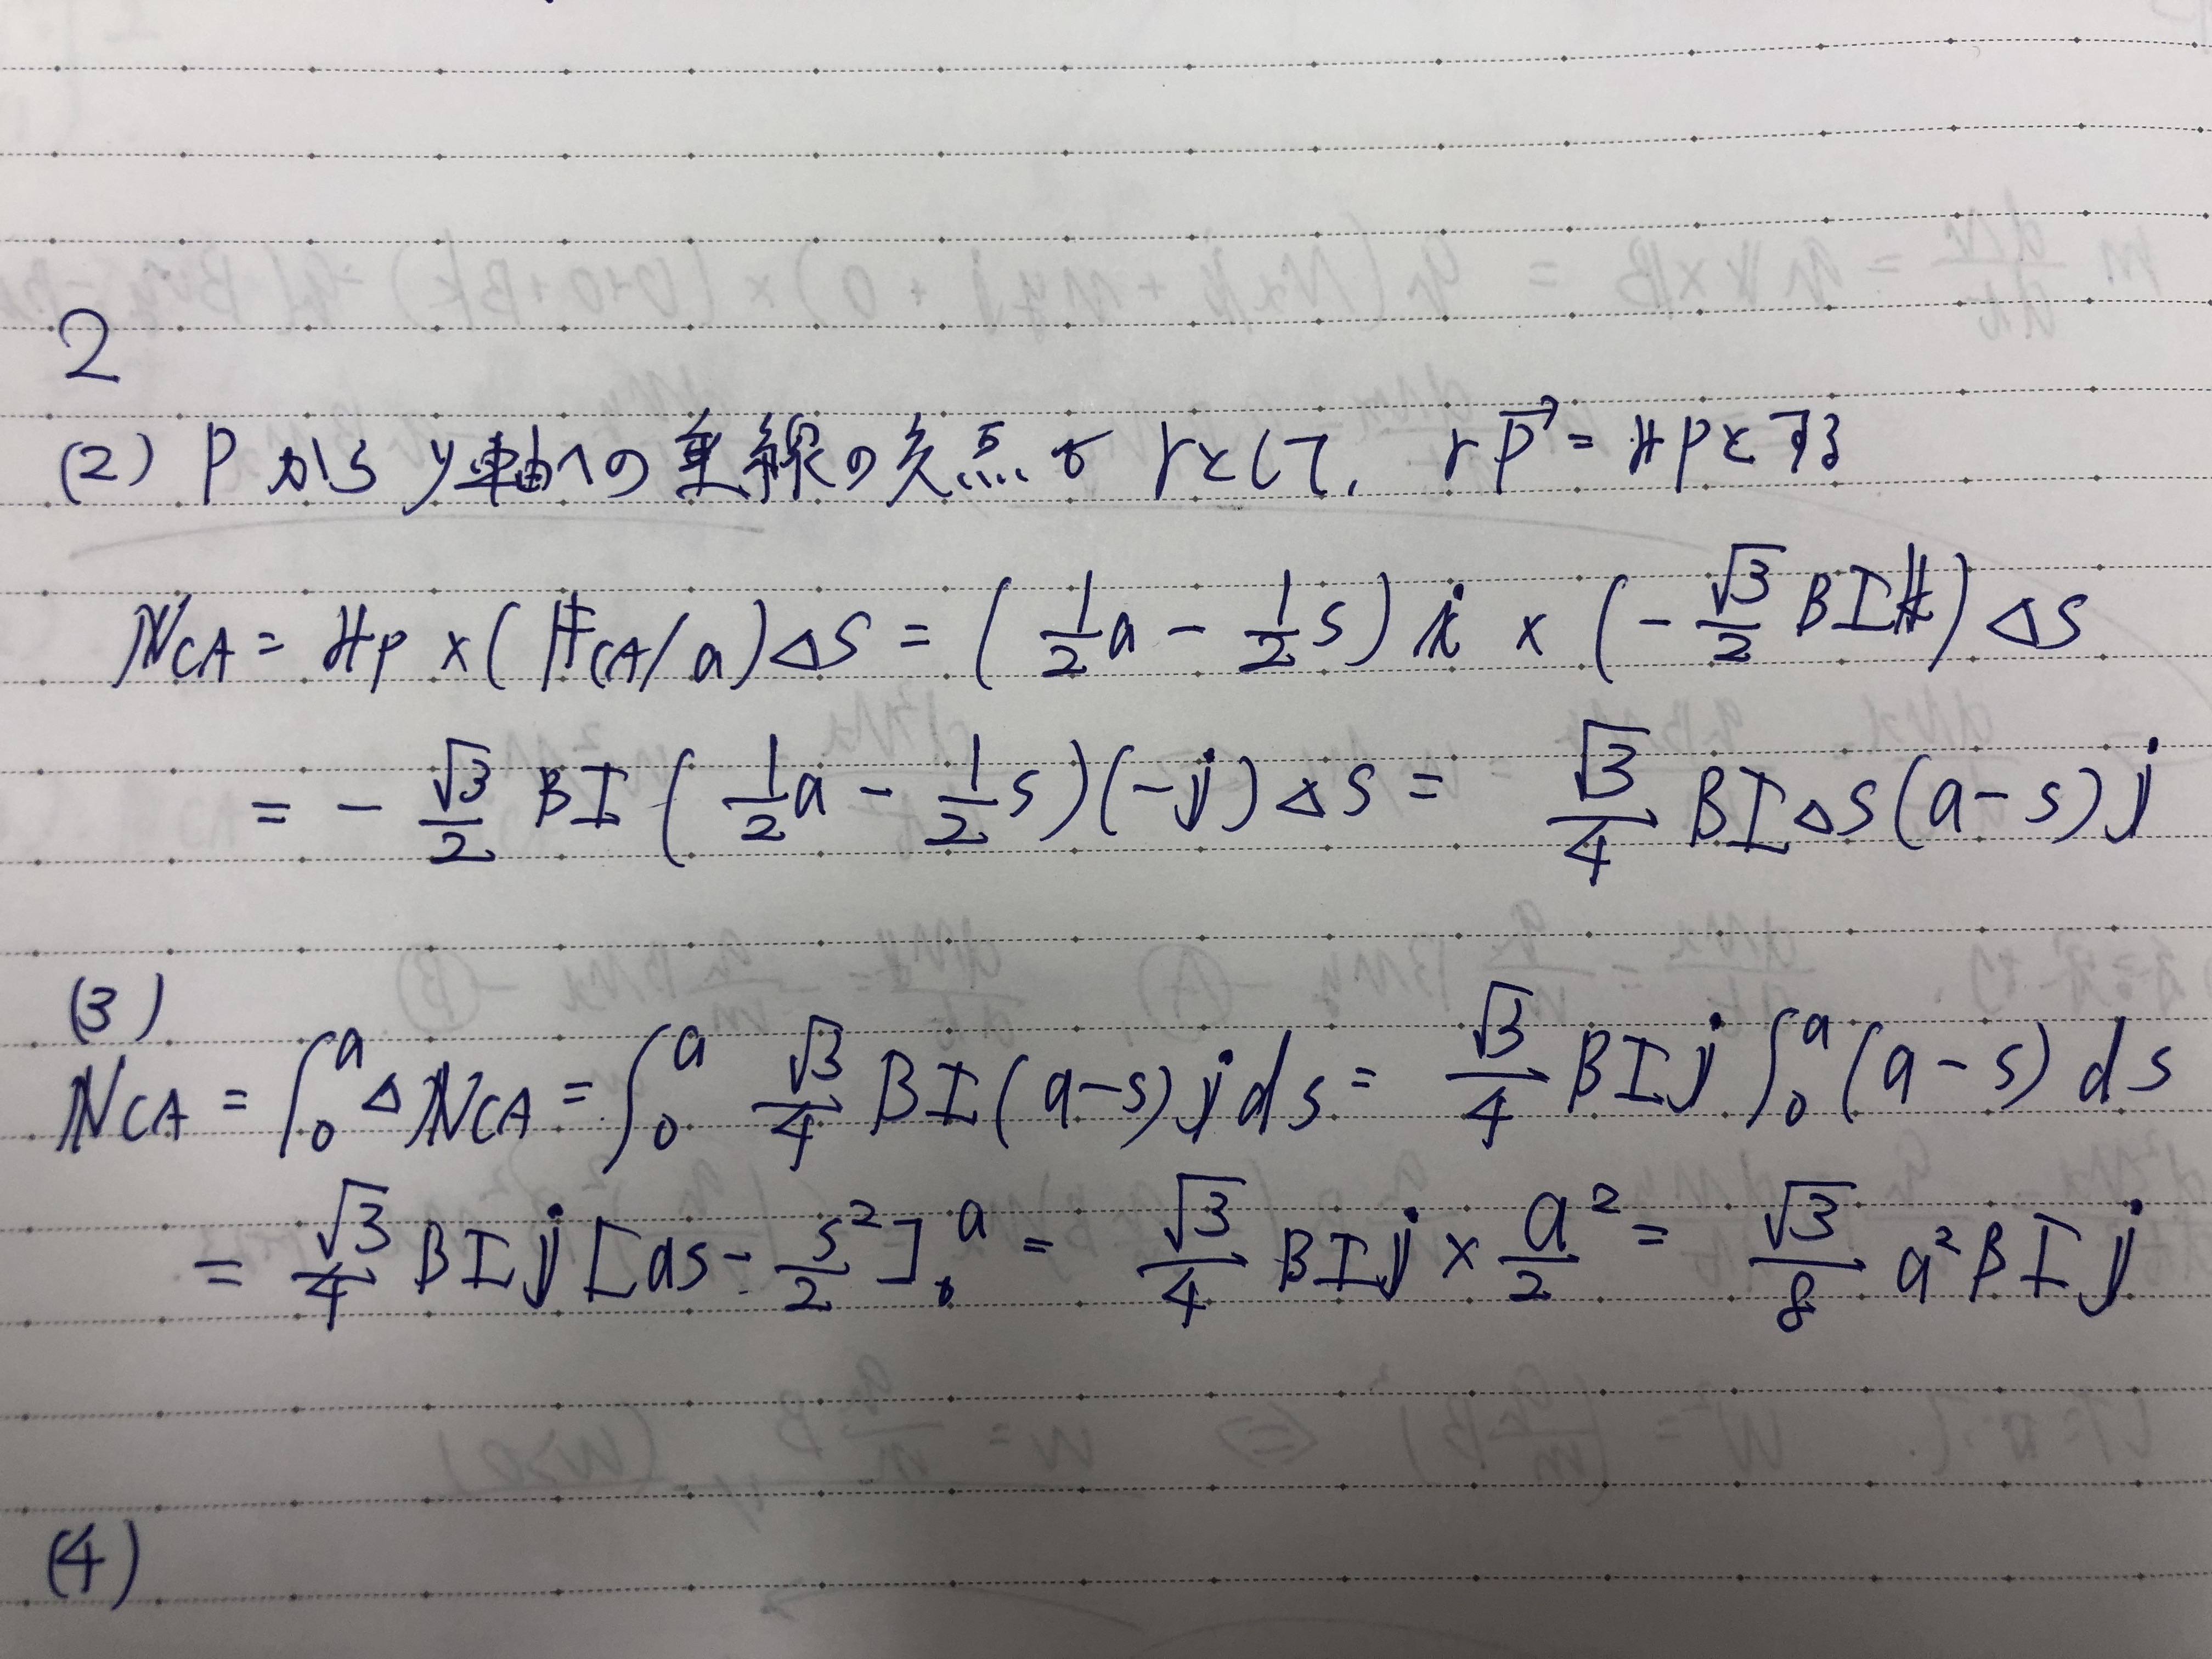 2
(2) Pからy軸への垂線の交点をrとして、 rP→ = rPとする
N_CA = r_P × (F_CA/a)ΔS = (1/2 a - 1/2 s) i × (-√3/2 BIk) ΔS
= - √3/2 BI (1/2 a - 1/2 s)(-j) ΔS = √3/4 BIΔS(a-s) j
(3)
N_CA = ∫₀^a ΔN_CA = ∫₀^a √3/4 BI(a-s) j ds = √3/4 BI j ∫₀^a (a-s) ds
= √3/4 BI j [as - s²/2]₀^a = √3/4 BI j × a²/2 = √3/8 a²BI j
(4)